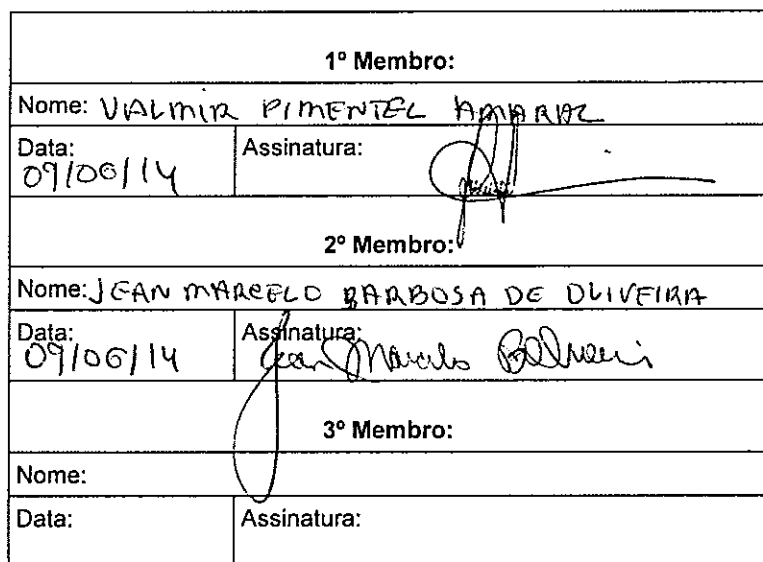 1º Membro:
Nome: VALMIR PIMENTEL AMARAL
Data: Assinatura:
09/06/14
2º Membro:
Nome: JEAN MARCELO BARBOSA DE OLIVEIRA
Data: Assinatura:
09/06/14 Jean Marcelo
3º Membro:
Nome:
Data: Assinatura: